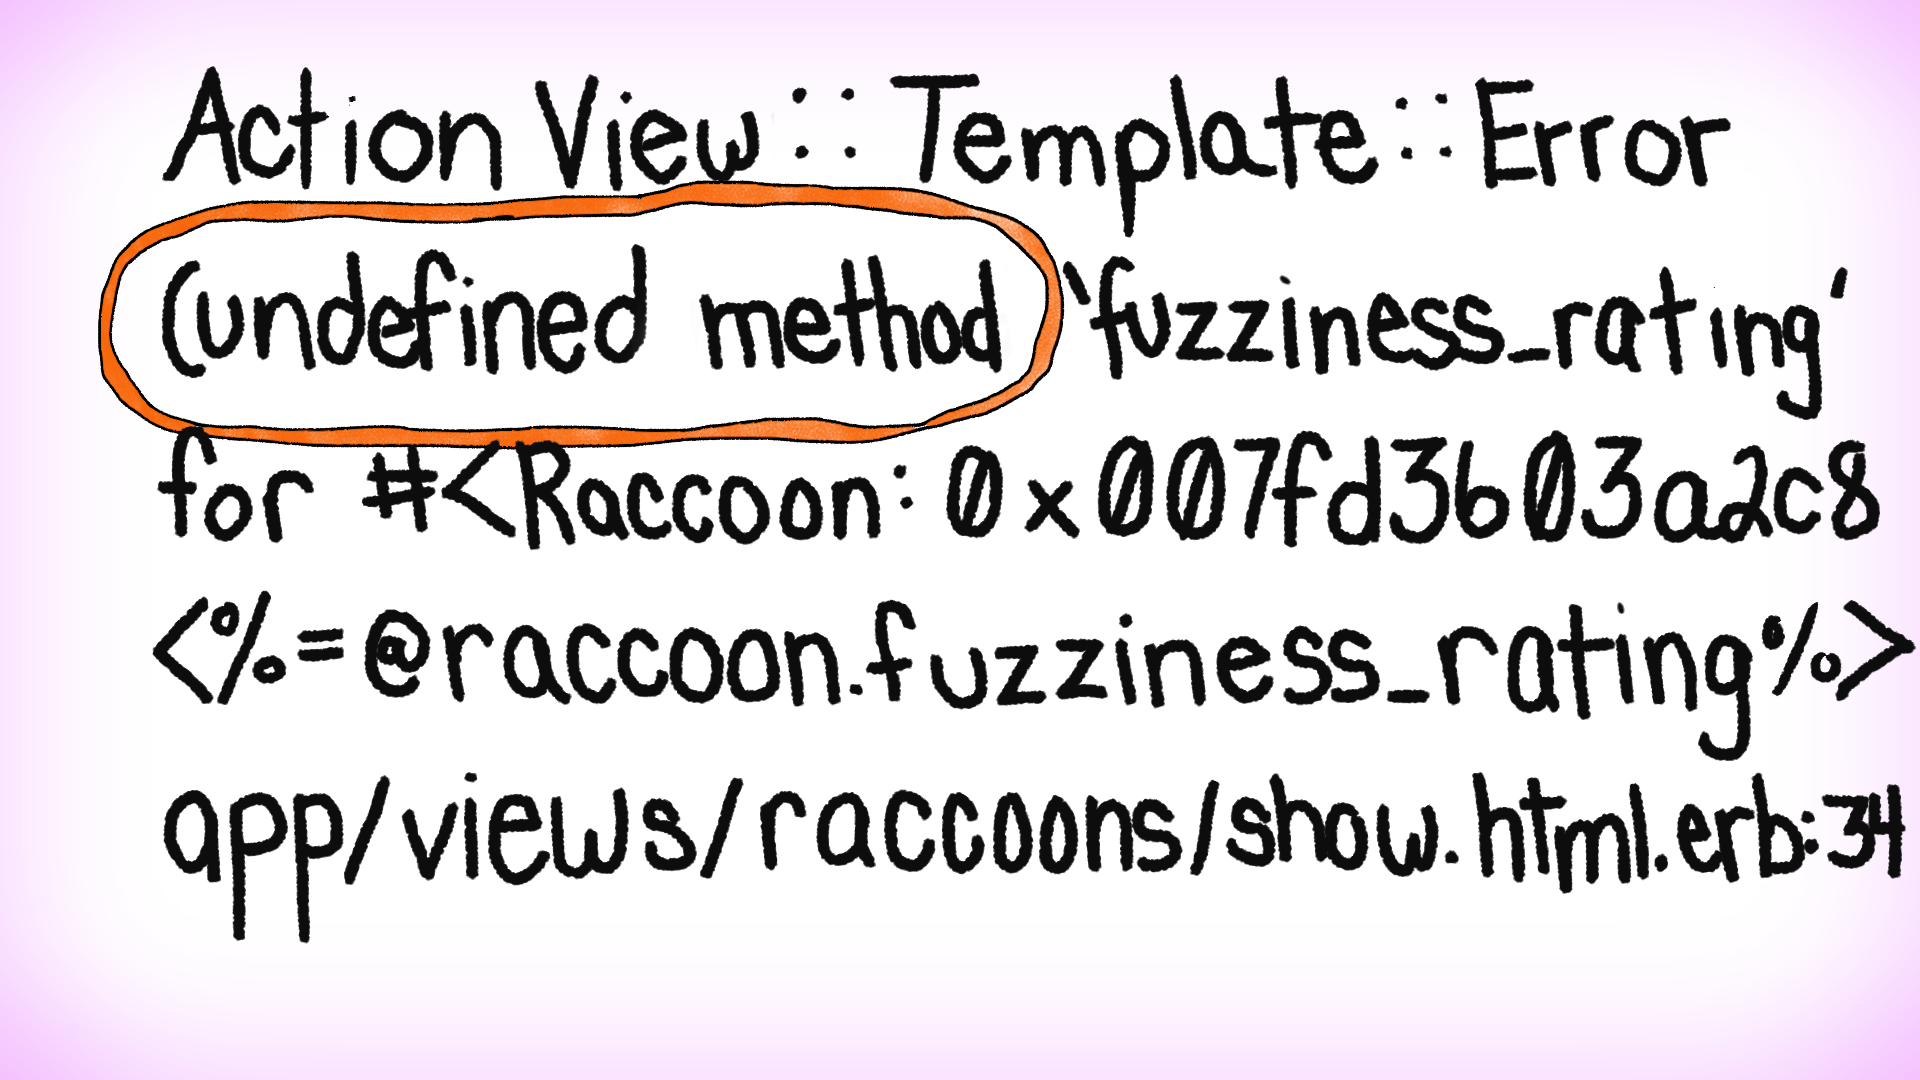 Action View::Template::Error
(undefined method 'fuzziness_rating'
for #<Raccoon:0x007fd3b03a2c8
<%=@raccoon.fuzziness_rating%>
app/views/raccoons/show.html.erb:34